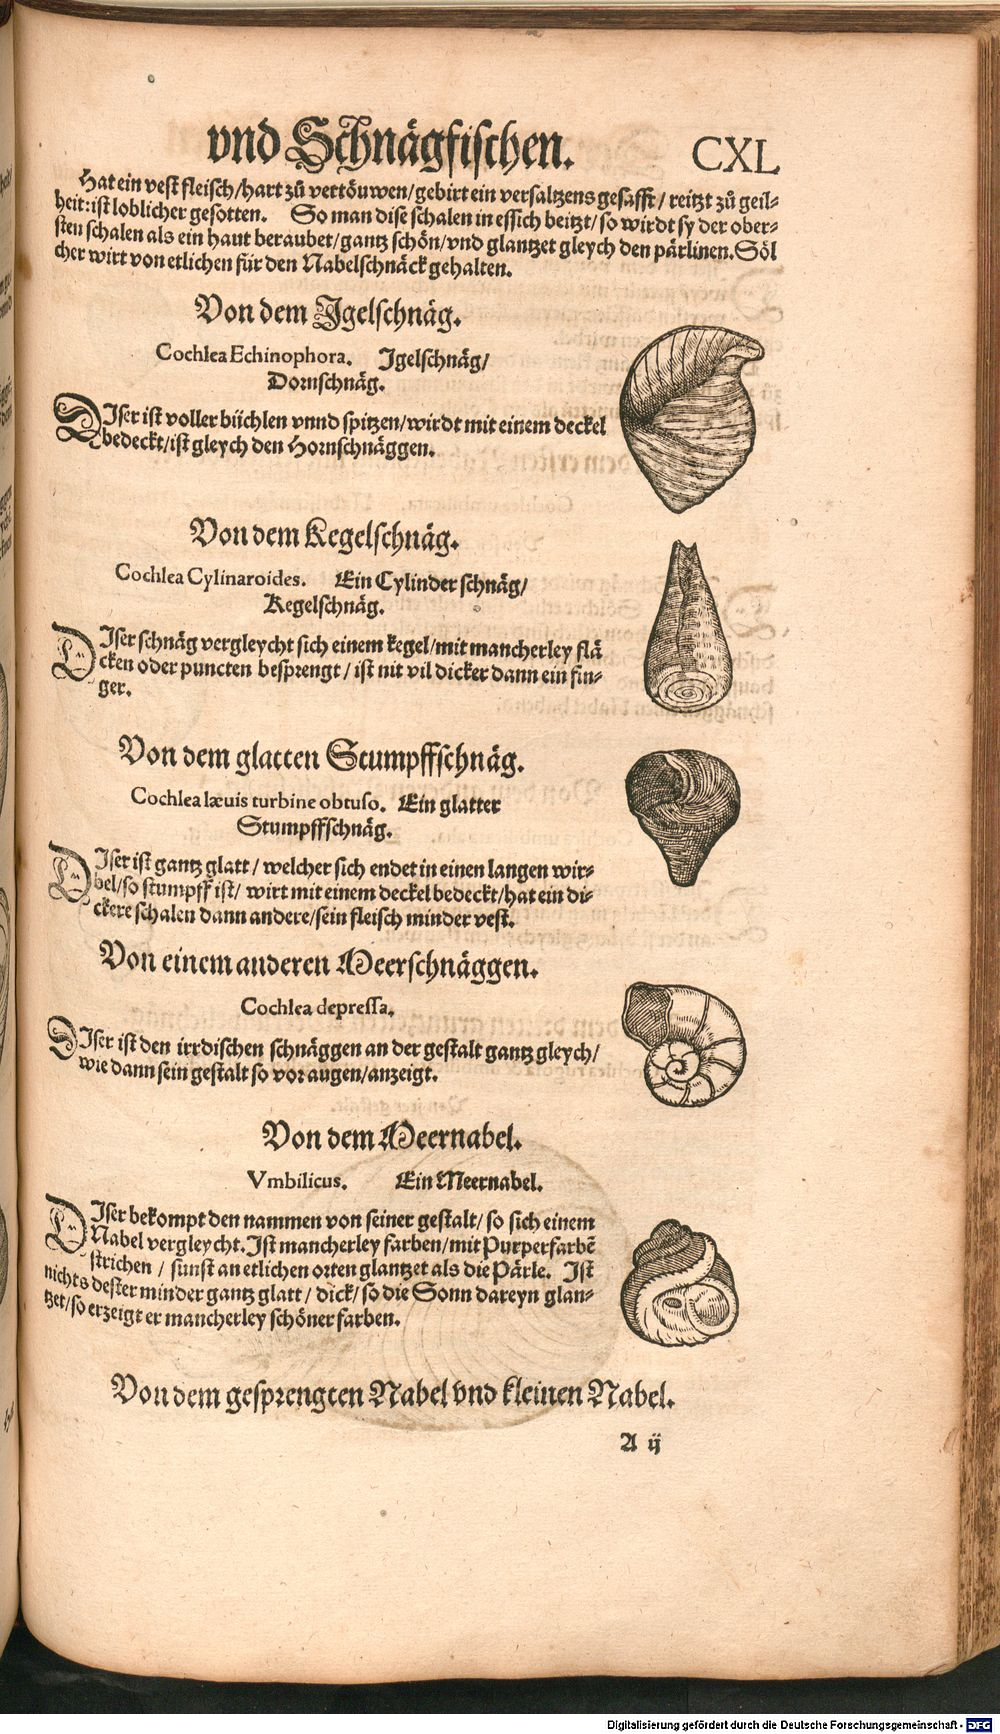 vnd Schnägfischen. CXL
Hat ein vest fleisch/hart zů vertöuwen/gebirt ein versaltzens gesafft/reitzt zů geil-
heit: ist loblicher gesotten. So man dise schalen in essich beitzt/so wirdt sy der ober-
sten schalen als ein haut beraubet/gantz schön/vnd glantzet gleych den pärlinen. Söl
cher wirt von etlichen für den Nabelschnäck gehalten.
Von dem Igelschnäg.
Cochlea Echinophora. Igelschnäg/
Dornschnäg.
DIser ist voller büchlen vnnd spitzen/wirdt mit einem deckel
bedeckt/ist gleych den Hornschnäggen.
Von dem Kegelschnäg.
Cochlea Cylinaroides. Ein Cylinder schnäg/
Kegelschnäg.
DIser schnäg vergleycht sich einem kegel/mit mancherley flä
cken oder puncten besprengt/ist nit vil dicker dann ein fin-
ger.
Von dem glatten Stumpffschnäg.
Cochlea lævis turbine obtuso. Ein glatter
Stumpffschnäg.
DIser ist gantz glatt/welcher sich endet in einen langen wir-
bel/so stumpff ist/wirt mit einem deckel bedeckt/hat ein di-
ckere schalen dann andere/sein fleisch minder vest.
Von einem anderen Meerschnäggen.
Cochlea depressa.
DIser ist den irrdischen schnäggen an der gestalt gantz gleych/
wie dann sein gestalt so vor augen/anzeigt.
Von dem Meernabel.
Vmbilicus. Ein Meernabel.
DIser bekompt den nammen von seiner gestalt/so sich einem
Nabel vergleycht. Ist mancherley farben/mit Purperfarbē
strichen/sunst an etlichen orten glantzet als die Pärle. Ist
nichts dester minder gantz glatt/dick/so die Sonn dareyn glan-
tzet/so erzeigt er mancherley schöner farben.
Von dem gesprengten Nabel vnd kleinen Nabel.
A ij
Digitalisierung gefördert durch die Deutsche Forschungsgemeinschaft - DFG